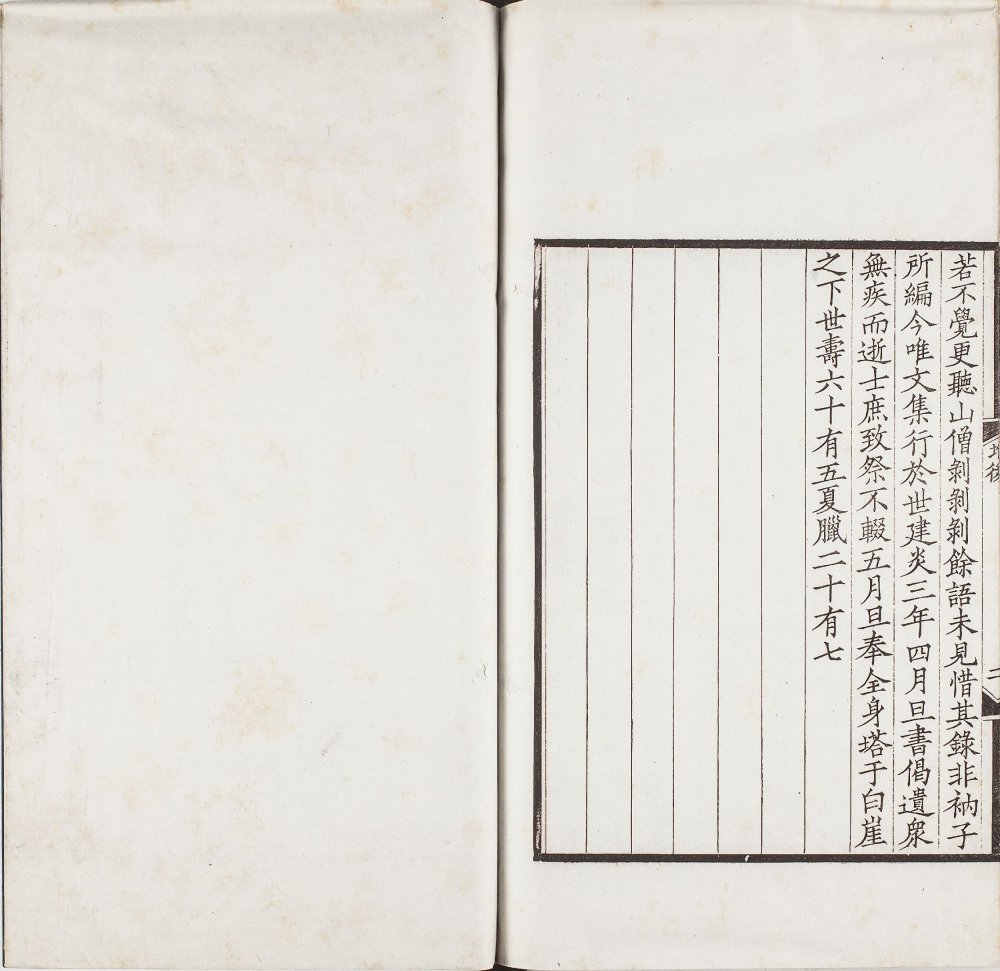 若不覺更聽山僧剝剝剝餘語未見惜其錄非衲子
所編今唯文集行於世建炎三年四月旦書偈遺衆
無疾而逝士庶致祭不輟五月旦奉全身塔于白崖
之下世壽六十有五夏臘二十有七